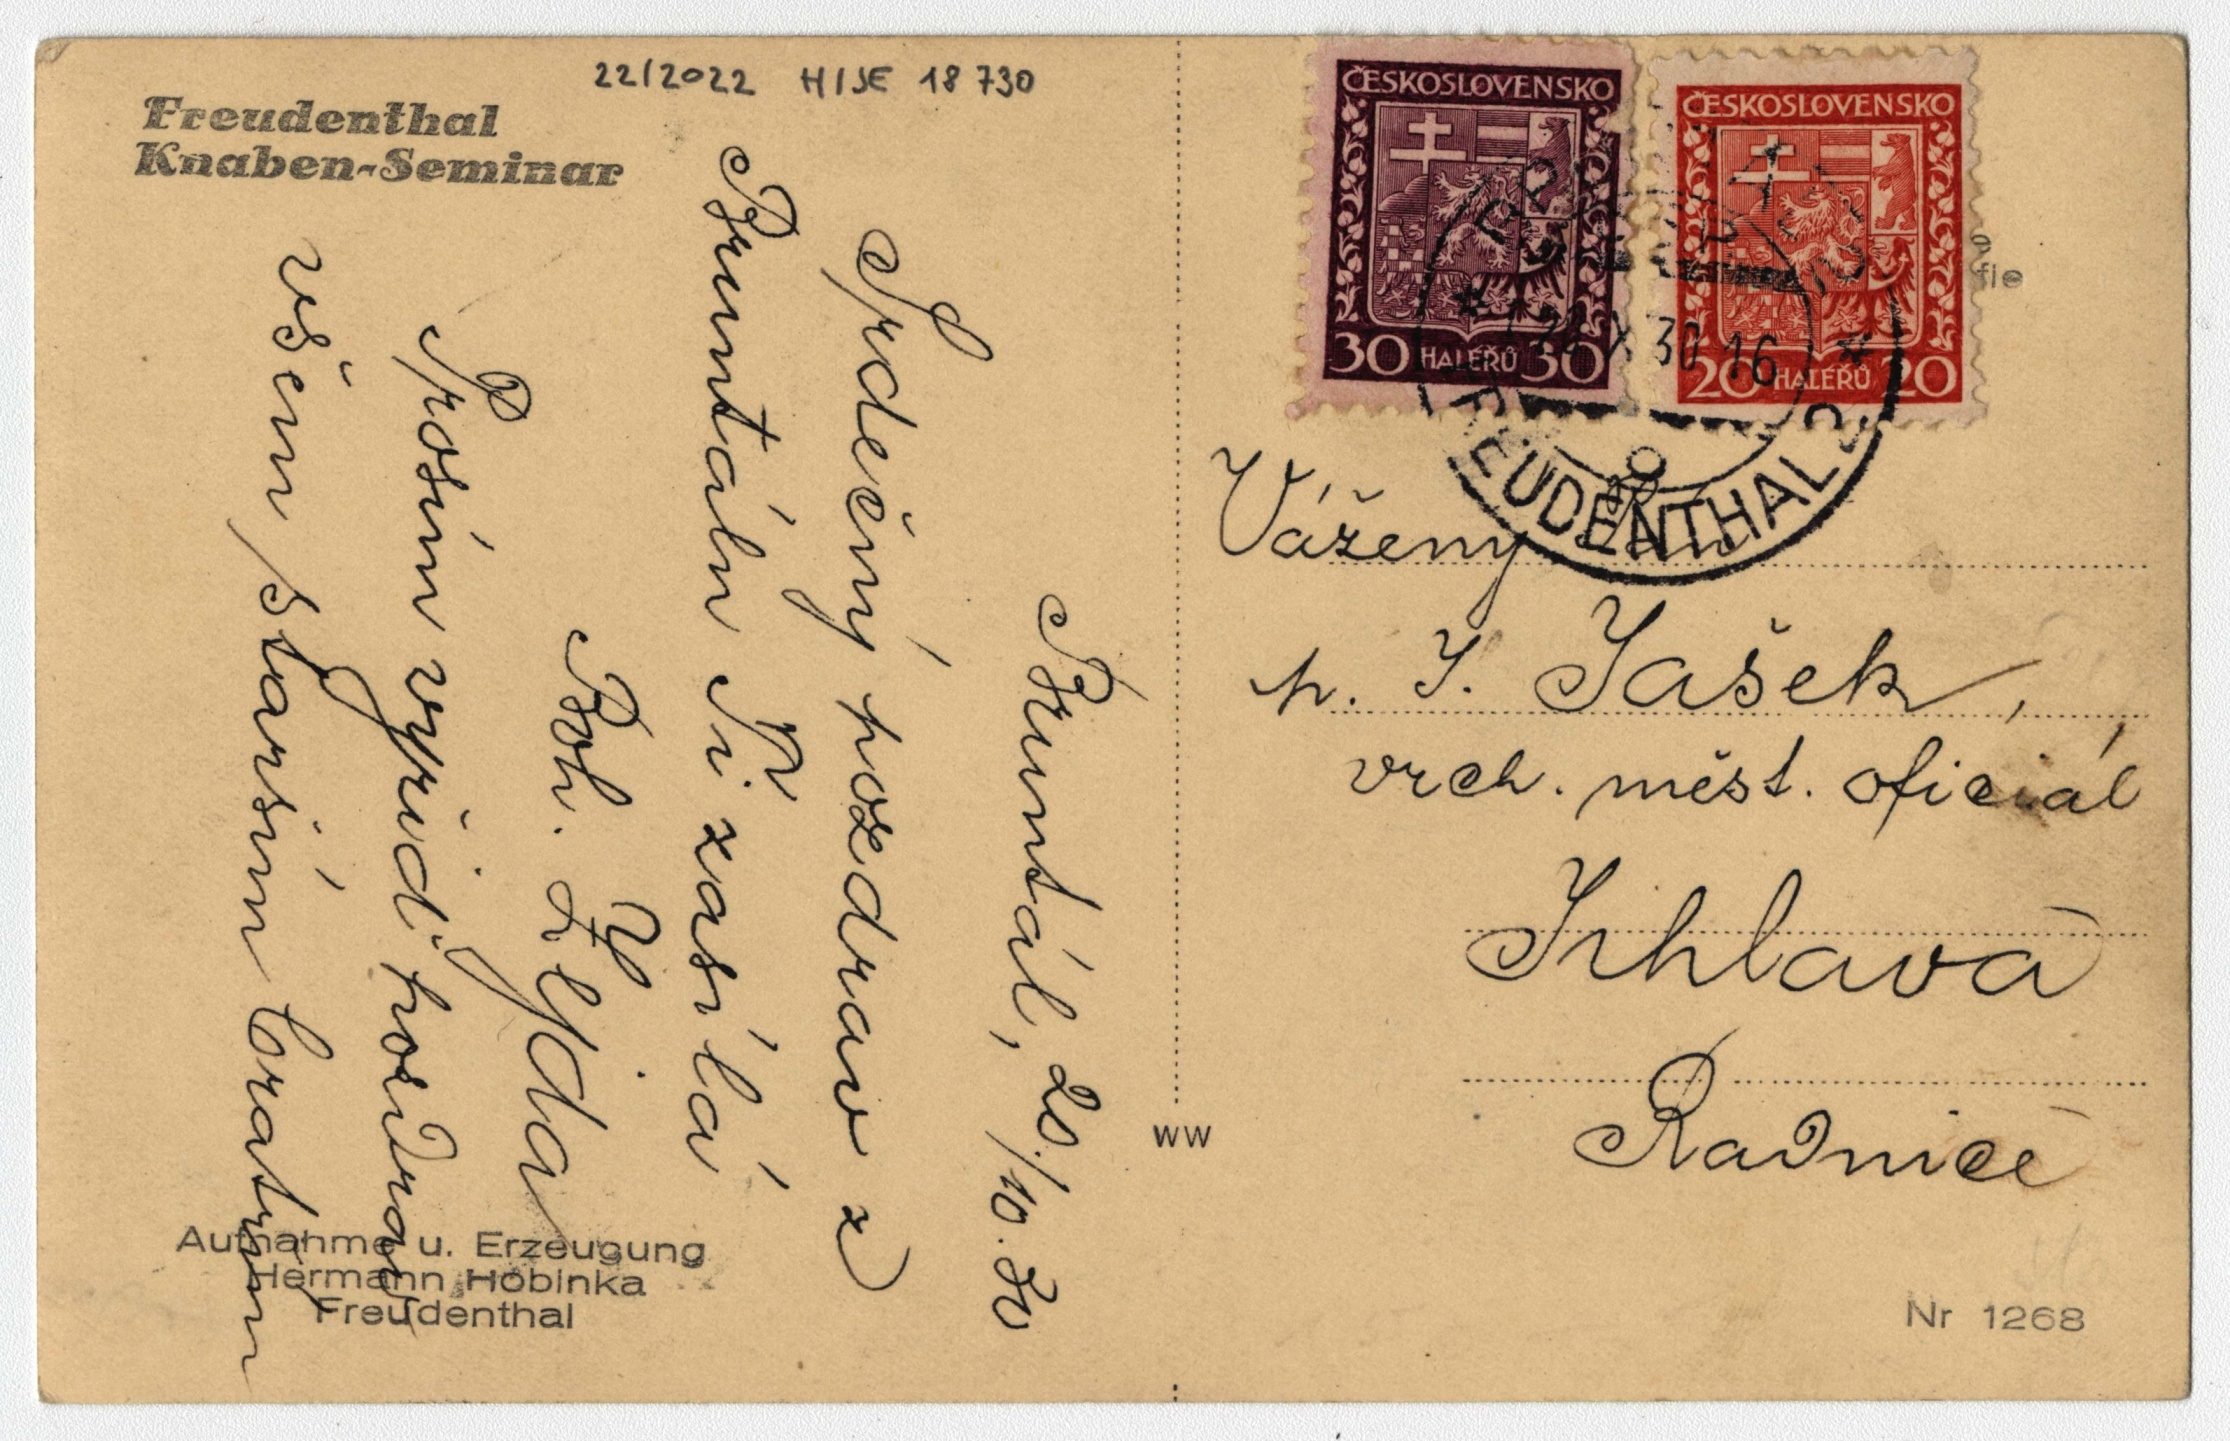 22/2022 H/JE 18 730
Freudenthal
Knaben-Seminar
Bruntál, 20./10. 30
Srdečný pozdrav z
Bruntálu Ti zasílá
Boh. Zejda
Prosím vyřiď pozdrav
všem starším bratřím
Aufnahme u. Erzeugung
Hermann Hobinka
Freudenthal
WW
ČESKOSLOVENSKO
30 HALÉŘŮ 30
ČESKOSLOVENSKO
20 HALÉŘŮ 20
X 30 16
FREUDENTHAL 2
fie
Vážený pán
p. J. Jašek,
vrch. měst. oficiál
Jihlava
Radnice
Nr 1268